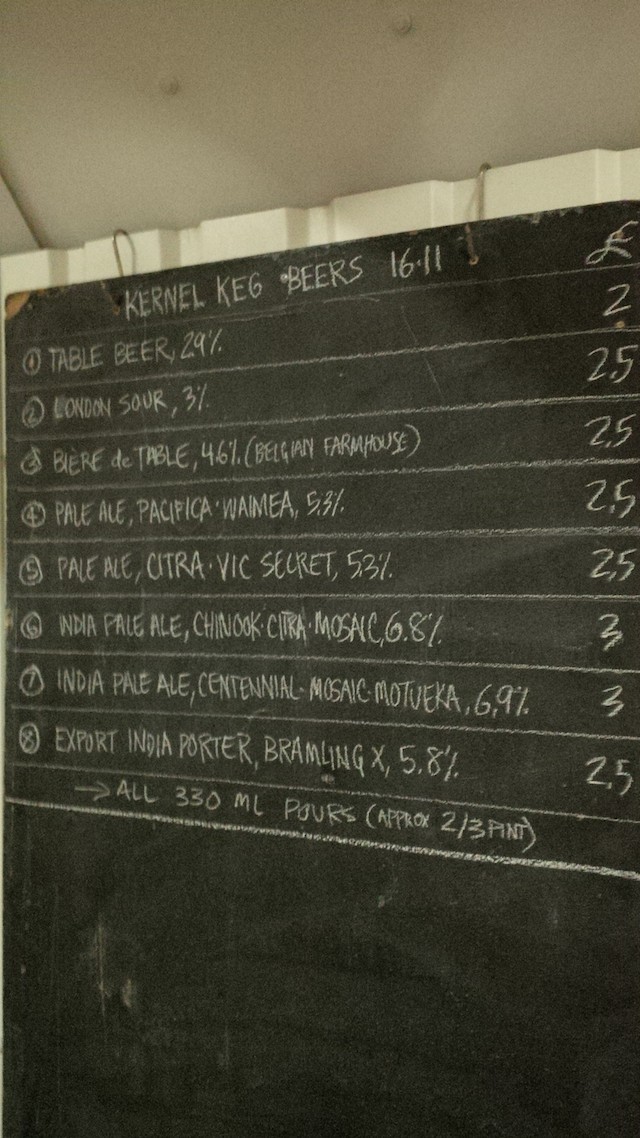 KERNEL KEG BEERS 16·11 £
① TABLE BEER, 2.9% 2
② LONDON SOUR, 3% 2,5
③ BIÈRE de TABLE, 4.6% (BELGIAN FARMHOUSE) 2,5
④ PALE ALE, PACIFICA·WAIMEA, 5.3% 2,5
⑤ PALE ALE, CITRA·VIC SECRET, 5.3% 2,5
⑥ INDIA PALE ALE, CHINOOK·CITRA·MOSAIC, 6.8% 3
⑦ INDIA PALE ALE, CENTENNIAL·MOSAIC·MOTUEKA, 6,9% 3
⑧ EXPORT INDIA PORTER, BRAMLING X, 5.8% 2,5
→ ALL 330 ML POURS (APPROX 2/3 PINT)